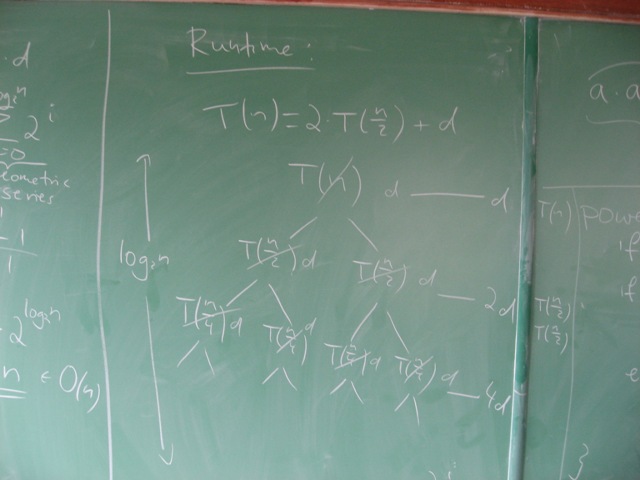 · d
log₂n
Σ 2^i
=0
geometric
series
- 1
1
2^log₂n
n ∈ O(n)
Runtime:
T(n)=2·T(n/2)+d
T(n) d — d
log₂n
T(n/2) d T(n/2) d — 2d
T(n/4) d T(n/4) d T(n/4) d T(n/4) d — 4d
a·a
T(n) power
if
if
T(n/2)
T(n/2)
e
}